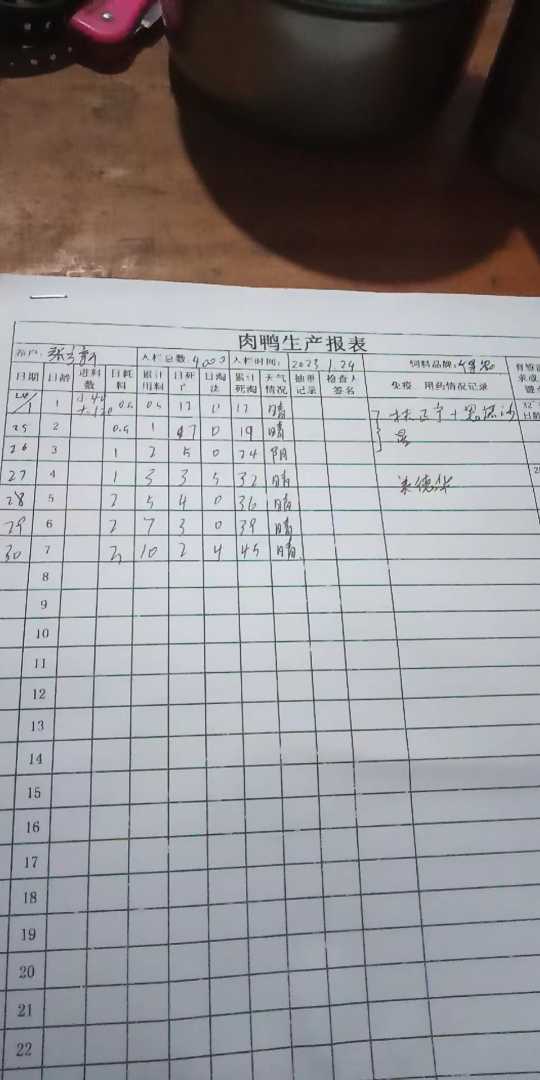 肉鸭生产报表
养户: 入栏总数: 4000 入栏时间: 2023 1 24 饲料品牌:
日期 日龄 进料数 日耗料 累计用料 日死亡 日淘汰 累计死淘 天气情况 抽重记录 检查人签名 免疫 用药情况记录
24/1 1 小40 大120 0.5 0.5 17 0 17 晴
25 2 0.5 1 2 0 19 晴
26 3 1 2 5 0 24 阴
27 4 1 3 3 5 32 晴
28 5 2 5 4 0 36 晴
29 6 2 7 3 0 39 晴
30 7 3 10 2 4 45 晴
8
9
10
11
12
13
14
15
16
17
18
19
20
21
22